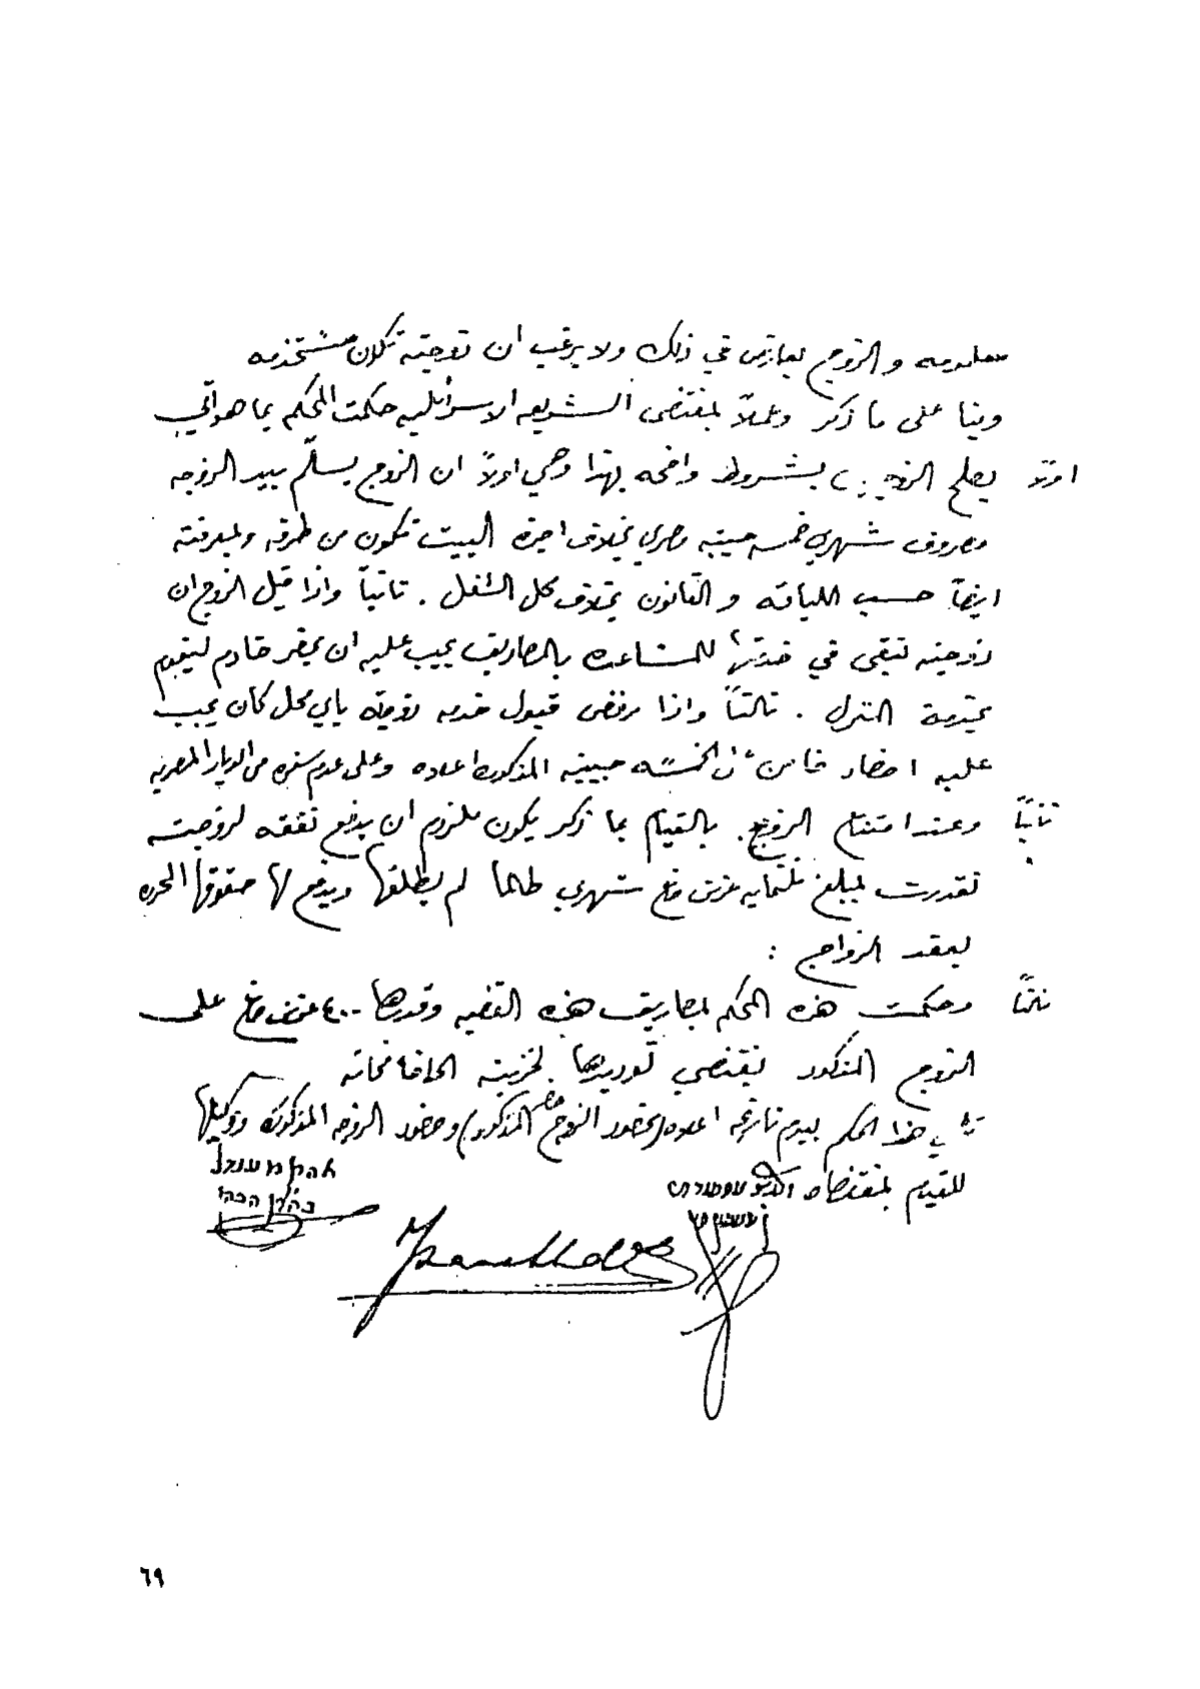 معلومه والزوج يعارض في ذلك ولا يرغب ان زوجته تكون مستخدمه
وبنا على ما ذكر وعملاً بمقتضى الشريعه الاسرائيليه حكمت المحكمه بما هو آتي
اولاً يصلح بشروط واضحه بهذا وهي اولاً ان الزوج يسلّم بيد الزوجه
مصروف شهري خمسه جنيه مصري بخلاف اجرة البيت تكون من طرفه ولمعرفته
ايضاً حسب اللياقه والقانون بخلاف محل الشغل . ثانياً واذا قبل الزوج ان
زوجته تبقى في خدمتها للمساعده بالمصاريف يجب عليه ان يحضر خادم ليقوم
بخدمة المنزل . ثالثاً واذا رفض قبول خدمه زوجته باي محل كان يجب
عليه احضار ضامن الخمسه جنيه المذكوره اعلاه وعلى عدم سفره من الديار المصريه
ثانياً وعند امتناع الزوج . بالقيام بما ذكر يكون ملزوم ان يدفع نفقه لزوجته
تقدرت بمبلغ ثلثمايه غرش صاغ شهري طالما لم يطلقها ويدفع لها حقوقها المحرره
بعقد الزواج :
ثالثاً وحكمت هذه المحكمه بمصاريف هذه القضيه وقدرها ٤٠٠ غرش صاغ على
الزوج المذكور يقتضي توريدها لخزينه الحاخامخانه
هذا الحكم بيوم تاريخه اعلاه (بحضور الزوج المذكور) وحضور الزوجه المذكوره ووكيلها
للقيام بمقتضاه
٦٩